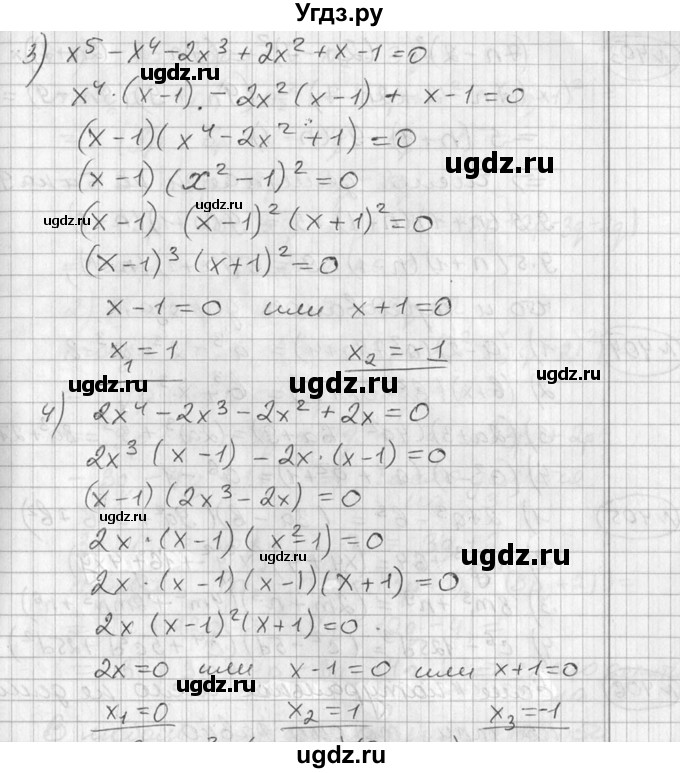 Угдз.ру
3) x⁵ - x⁴ - 2x³ + 2x² + x - 1 = 0
ugdz.ru ugdz.ru
x⁴ · (x - 1) - 2x² (x - 1) + x - 1 = 0
(x - 1)(x⁴ - 2x² + 1) = 0
ugdz.ru
(x - 1) (x² - 1)² = 0
ugdz.ru ugdz.ru
(x - 1) (x - 1)² (x + 1)² = 0
(x - 1)³ (x + 1)² = 0
x - 1 = 0 или x + 1 = 0
x₁ = 1 x₂ = -1
ugdz.ru ugdz.ru ugdz.ru
4) 2x⁴ - 2x³ - 2x² + 2x = 0
2x³ (x - 1) - 2x · (x - 1) = 0
(x - 1) (2x³ - 2x) = 0
ugdz.ru
2x · (x - 1) (x² - 1) = 0
ugdz.ru ugdz.ru
2x · (x - 1) (x - 1) (x + 1) = 0
2x (x - 1)² (x + 1) = 0
2x = 0 или x - 1 = 0 или x + 1 = 0
ugdz.ru
x₁ = 0 x₂ = 1 x₃ = -1
ugdz.ru